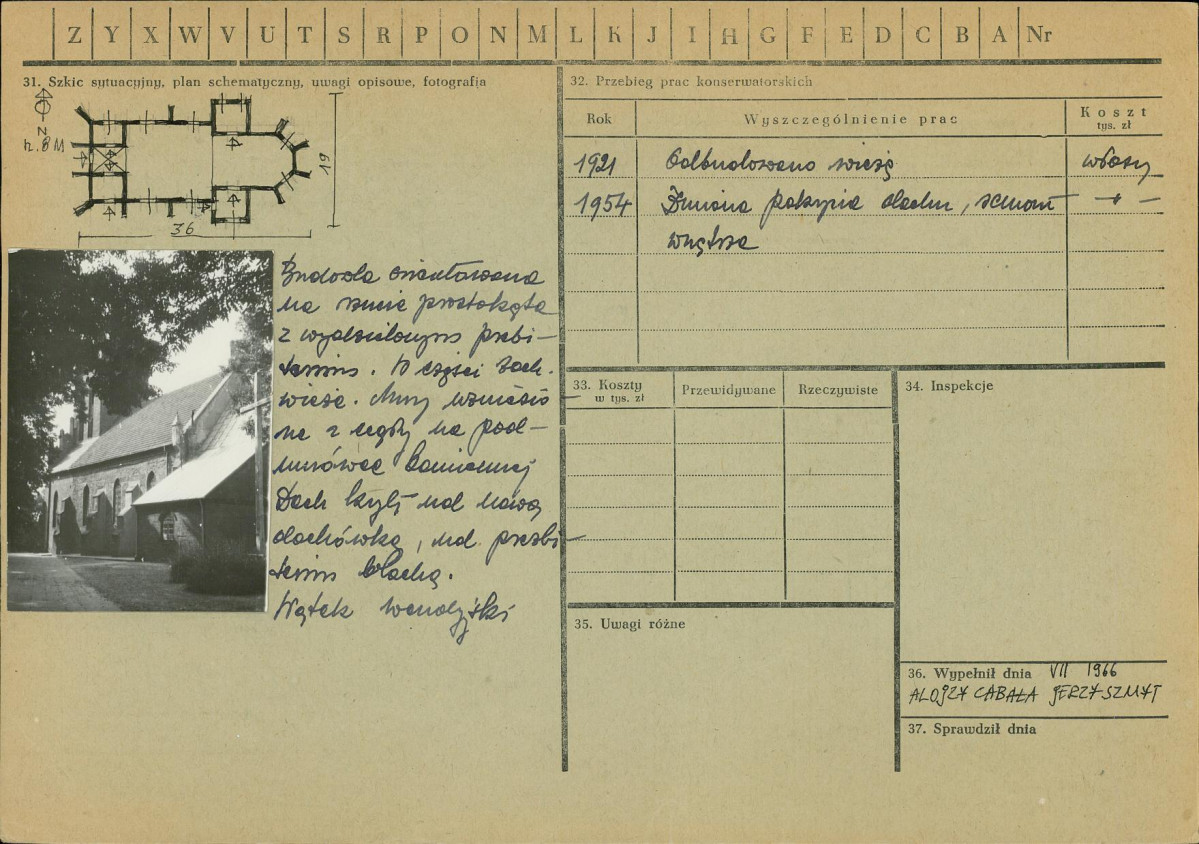 Z Y X W V U T S R P O N M L K J I H G F E D C B A Nr
31. Szkic sytuacyjny, plan schematyczny, uwagi opisowe, fotografia
N
h. 8 M
19
36
Budowla orientowana
na rzucie prostokąta
z wydzielonym prezbi-
terium. W części zach.
wieże. Mury wzniesio-
ne z cegły na pod-
murówce kamiennej
Dach kryty nad nawą
dachówką, nad prezbi-
terium blachą.
Wątek wendyjski
32. Przebieg prac konserwatorskich
Rok Wyszczególnienie prac Koszt
tys. zł
1921 Odbudowano wieżę własny
1954 Zmiana pokrycia dachu, remont - " -
wnętrza
33. Koszty Przewidywane Rzeczywiste
w tys. zł
34. Inspekcje
35. Uwagi różne
36. Wypełnił dnia VII 1966
ALOJZY CABAŁA JERZY SZMYT
37. Sprawdził dnia